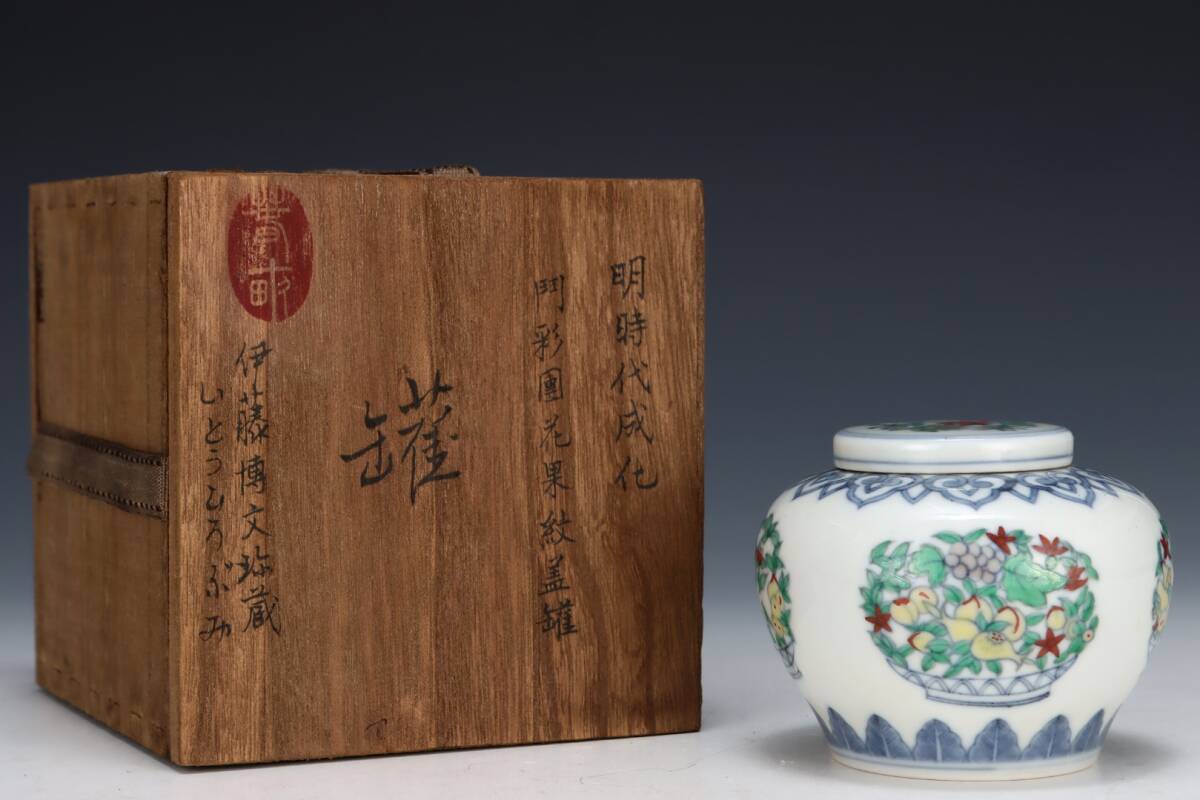 明時代成化
鬥彩團花果紋盖罐
罐
伊藤博文珎蔵
いとうひろぶみ